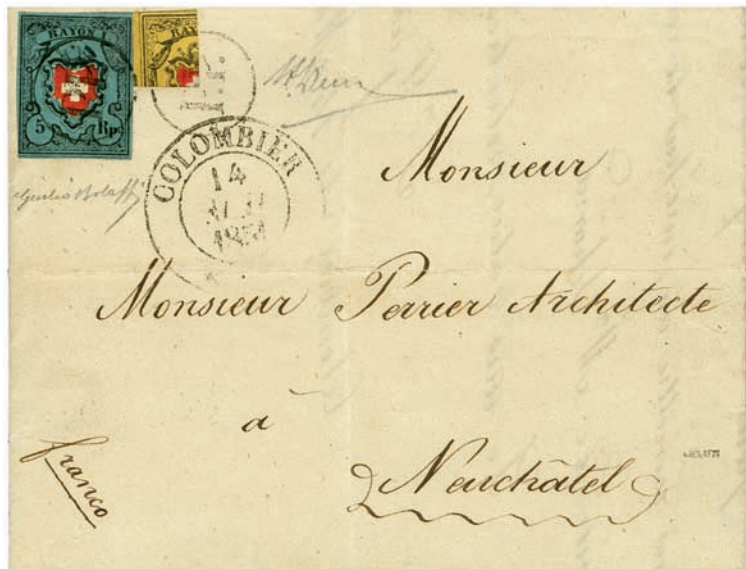 RAYON I.
RAY
5 Rp.
P.P.
COLOMBIER
14
Monsieur
Monsieur Perrier Architecte
à
Neuchâtel
franco